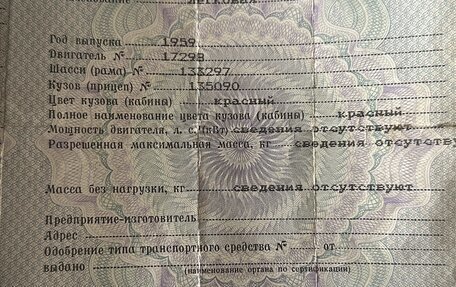 легковая
Год выпуска 1959
Двигатель № 17293
Шасси (рама) № 133297
Кузов (прицеп) № 135090
Цвет кузова (кабины) красный
Полное наименование цвета кузова (кабины) красный
Мощность двигателя, л. с. (кВт) сведения отсутствуют
Разрешенная максимальная масса, кг сведения отсутству
Масса без нагрузки, кг сведения отсутствуют
Предприятие-изготовитель
Адрес
Одобрение типа транспортного средства № от
выдано
(наименование органа по сертификации)